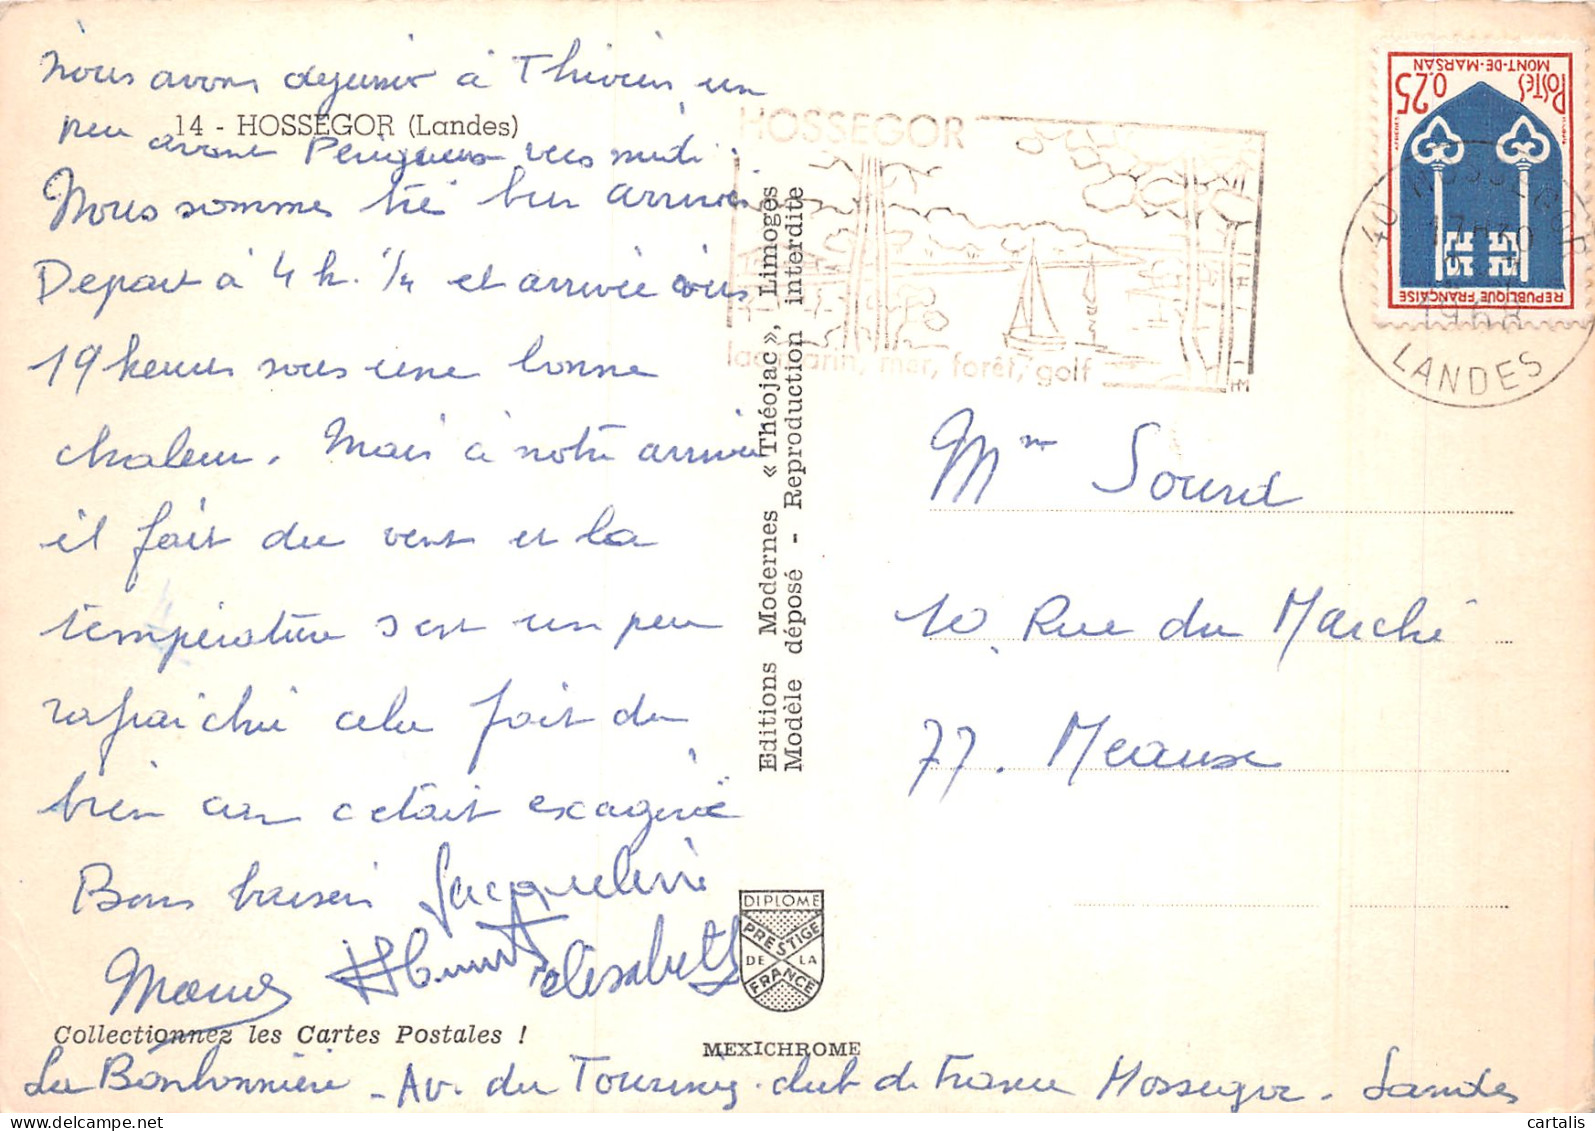 nous avons dejeuner à Thiviers un
peu avant Périgueux vers midi.
14 - HOSSEGOR (Landes)
Nous sommes tré bien arrivés
Depart à 4 h. 1/4 et arrivée vers
19 heures sous une bonne
chaleur. Mais à notre arrivée
il fait du vent et la
température s est un peu
rafraichie cela fait du
bien car c etait exagéré
Bons baisers Jacqueline
Mames Elisabeth
Collectionnez les Cartes Postales !
La Bonbonnière - Av. du Touring-club de France Hossegor. Landes
Editions Modernes « Théojac », Limoges
Modèle déposé - Reproduction interdite
DIPLOME
PRESTIGE
DE LA
FRANCE
MEXICHROME
HOSSEGOR
lac marin, mer, forêt, golf
POSTES 0,25
MONT-DE-MARSAN
REPUBLIQUE FRANÇAISE
40 HOSSEGOR
17H30
1968
LANDES
Mm Sourd
10. Rue du Marché
77. Meaux
cartalis
delcampe.net